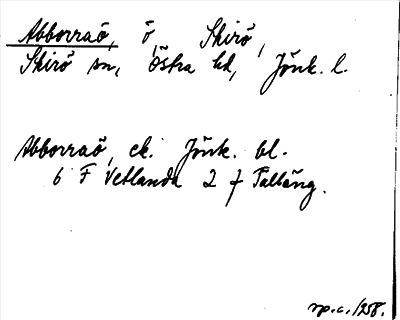 Abborraö, ö, Skirö,
Skirö sn, Östra hd, Jönk. l.
Abborraö, ek. Jönk. bl.
6 F Vetlanda 2 f Talläng.
1958.